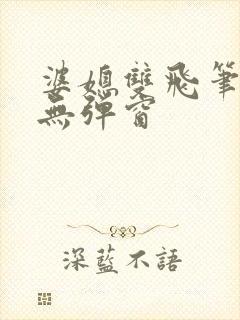 婆媳雙飛筆
無彈窗
深藍不語